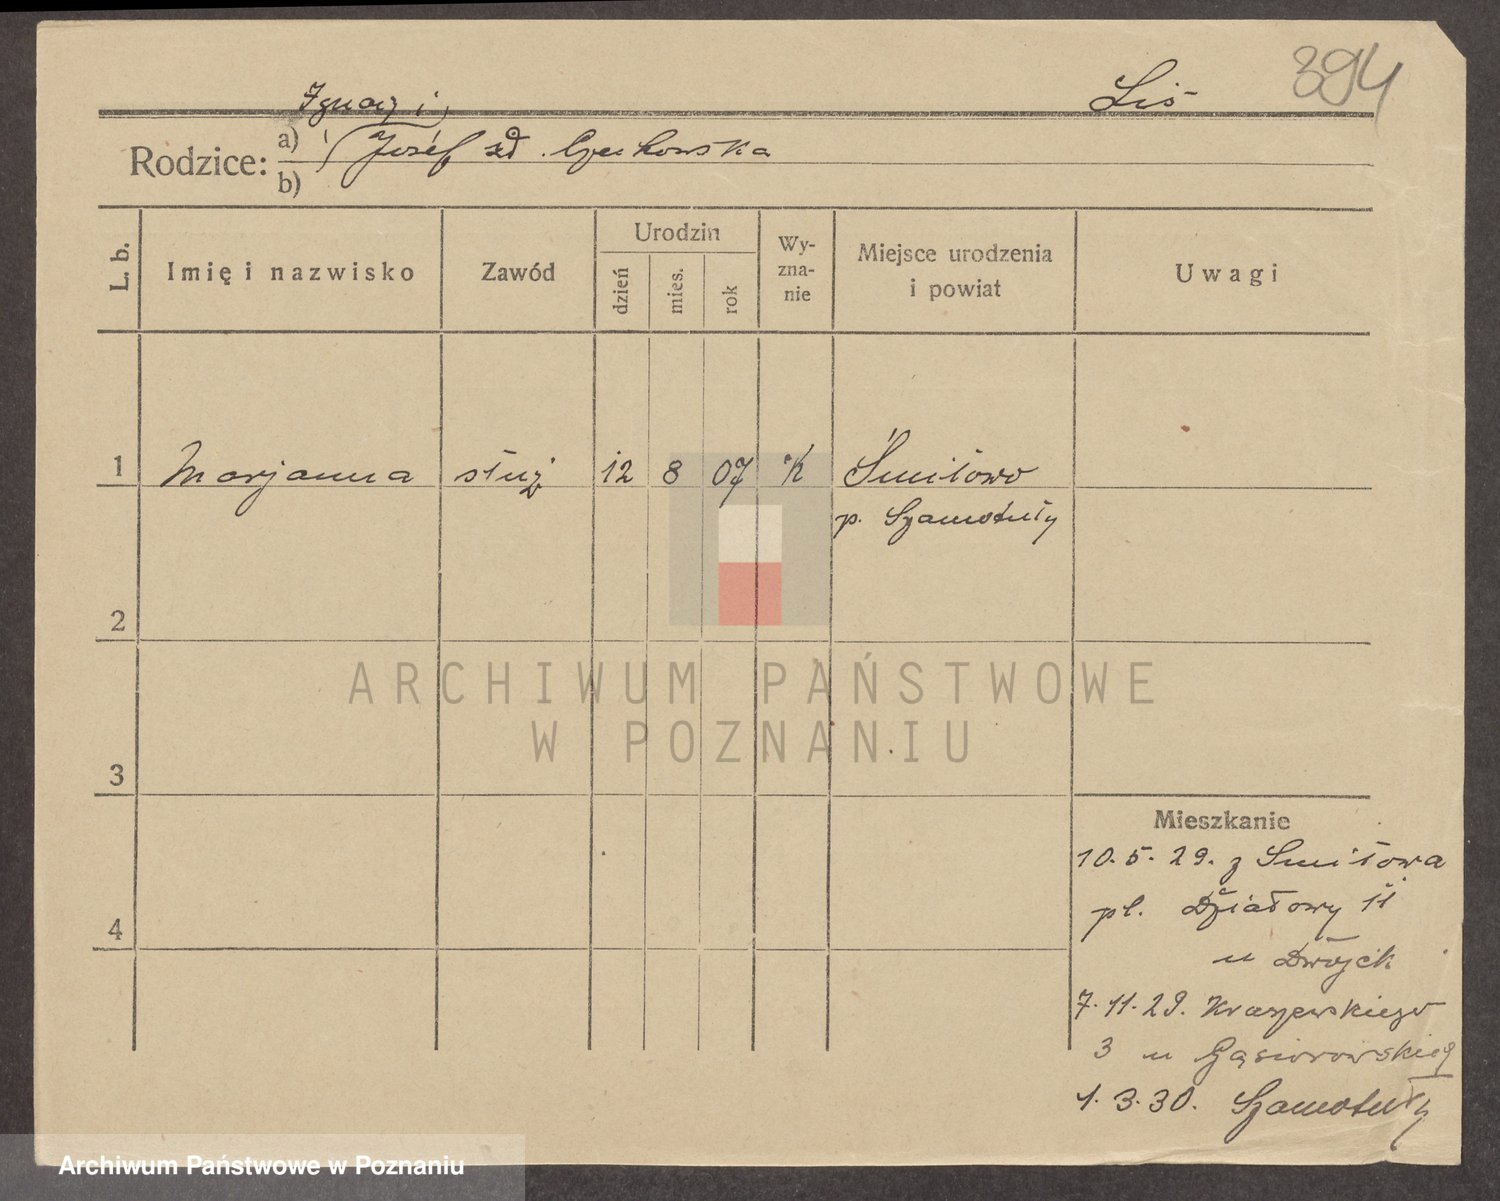 394
Liś
Ignacy i
Rodzice: a) Józef zd. Czechowska
b)
L. b.
Imię i nazwisko
Zawód
Urodzin
dzień
mies.
rok
Wy-
zna-
nie
Miejsce urodzenia
i powiat
Uwagi
1 Marjanna służ 12 8 07 K Śmiłowo
p. Szamotuły
2
3
4
Mieszkanie
10.5.29. z Śmiłowa
pl. Działowy 11
u Dwojck
7.11.29. Kraszewskiego
3 u Gąsiorowskieg
1.3.30. Szamotuły
ARCHIWUM PAŃSTWOWE
W POZNANIU
Archiwum Państwowe w Poznaniu